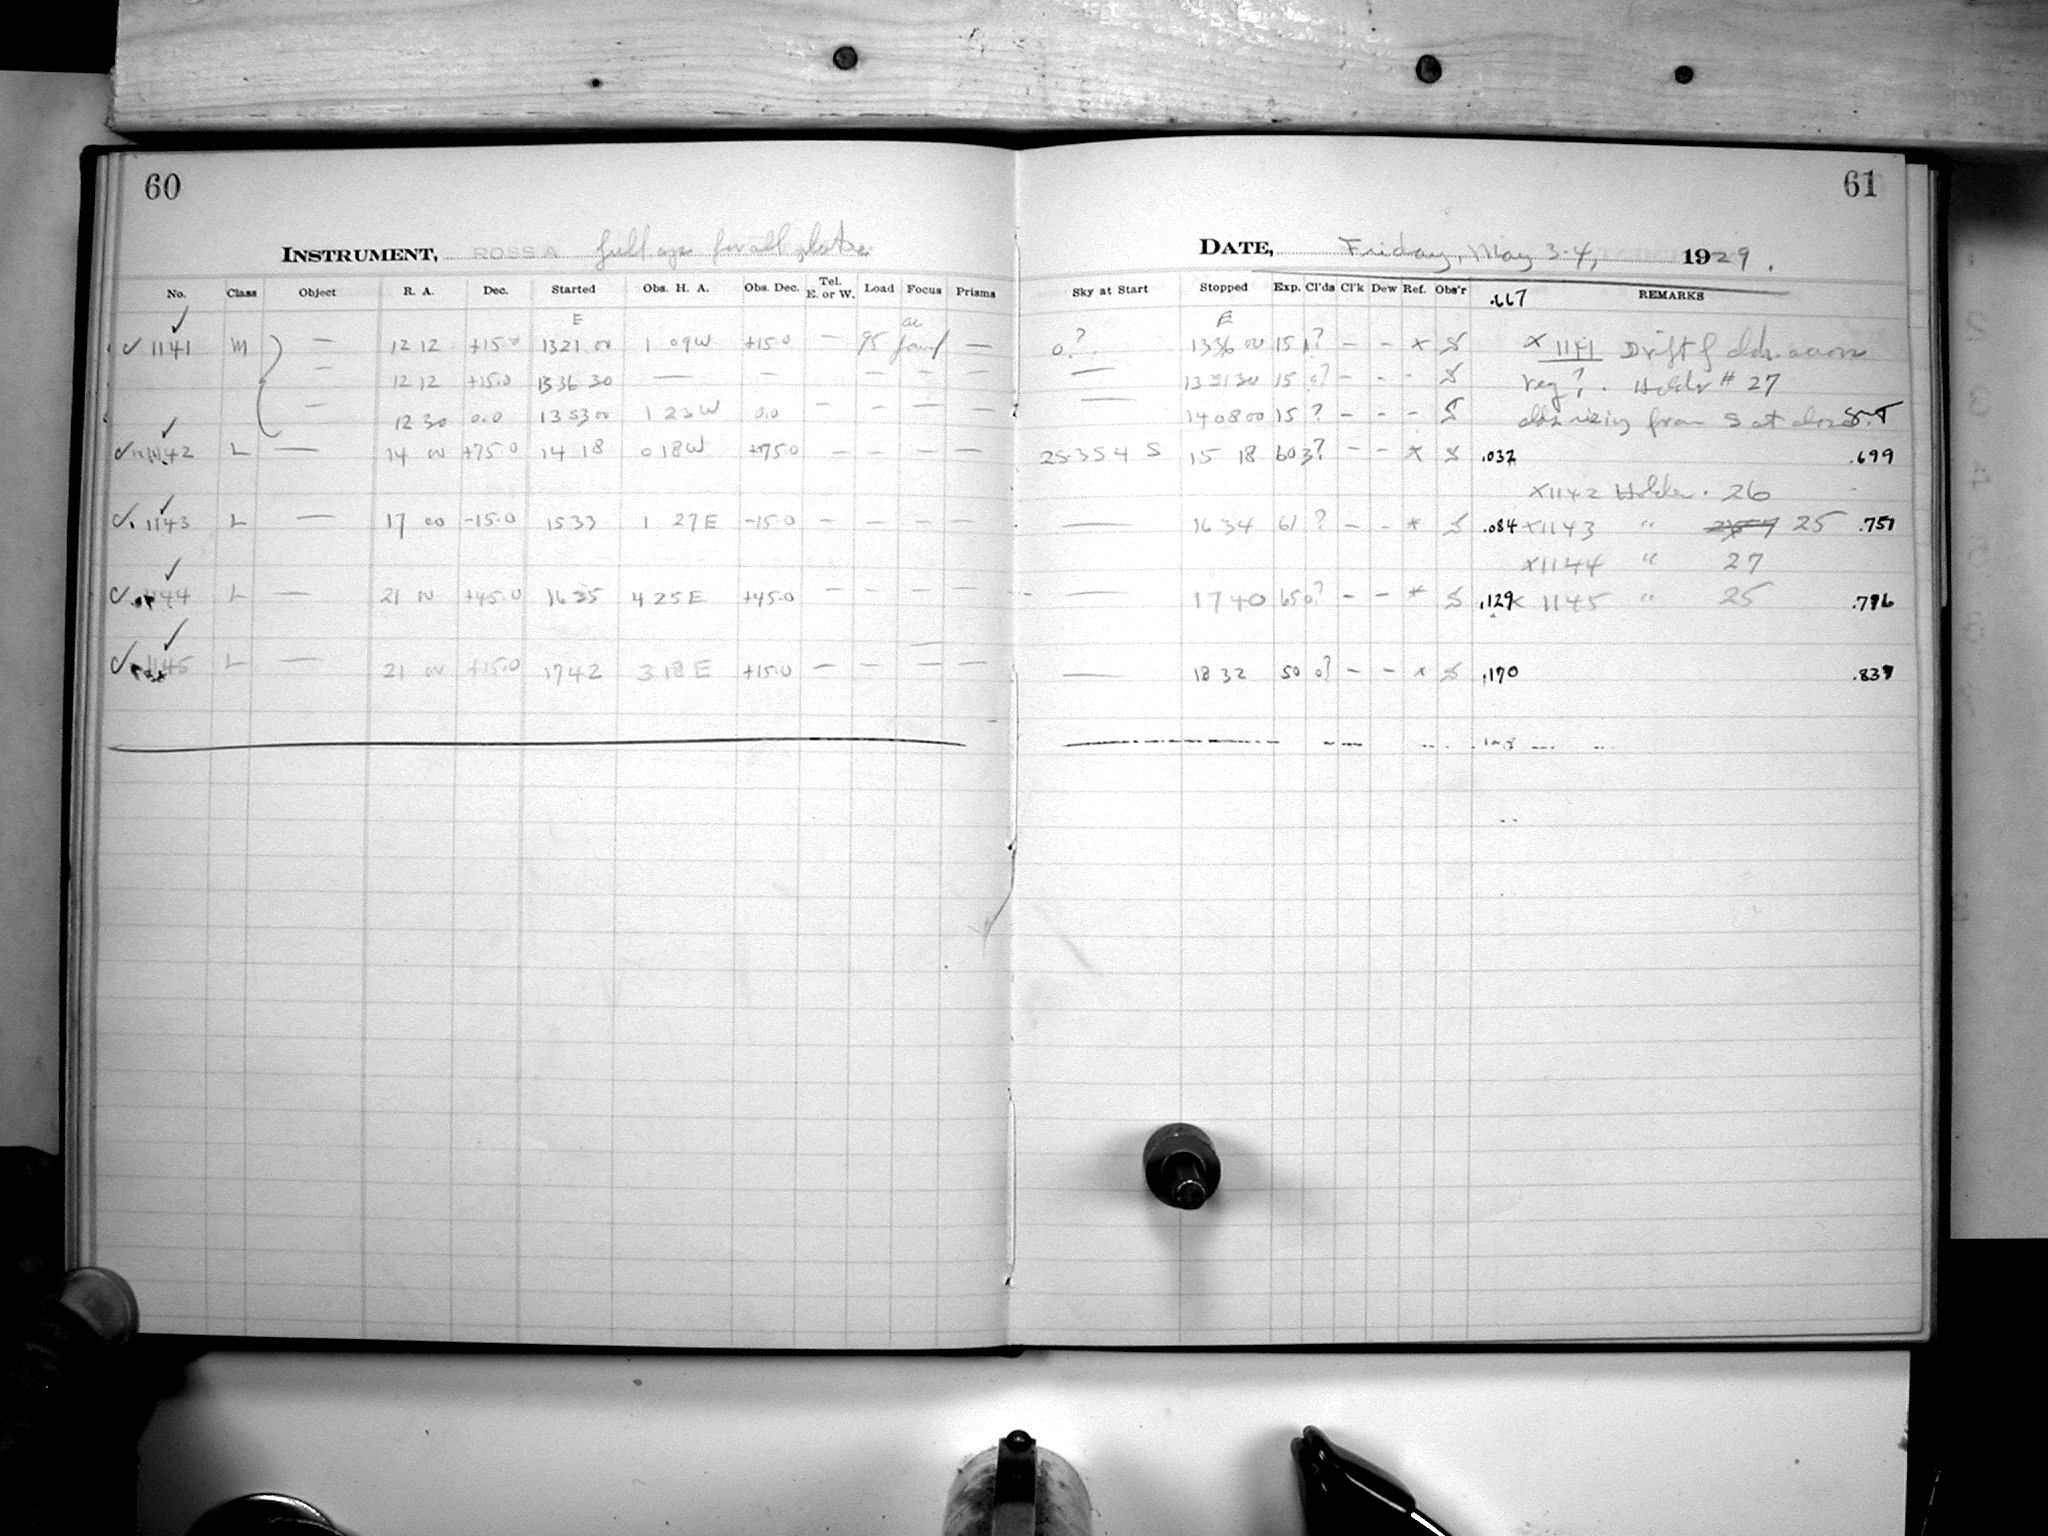 60
61
INSTRUMENT, ROSS A full ap. for all plates
DATE, Friday, May 3-4, 1929.
No. Class Object R. A. Dec. Started Obs. H. A. Obs. Dec. Tel. E. or W. Load Focus Prisms Sky at Start Stopped Exp. Cl'ds Cl'k Dew Ref. Obs'r .667 REMARKS
E as E
✓ 1141 M — 12 12 +15.0 1321 00 1 09W +15.0 — 95 found — 0? 1336 00 15 ? — — x x 1141 Drift of clds. across
— 12 12 +15.0 1336 30 — — — — — — — 1351 30 15 0? — — — reg?. Holder # 27
— 12 30 0.0 1353 00 1 23W 0.0 — — — — — 140800 15 ? — — — rising from S at close S.T
✓ 1142 L — 14 00 +75.0 14 18 0 18W +75.0 — — — — 25354 S 15 18 60 3? — — x .032 .699
x1142 Holder. 26
✓ 1143 L — 17 00 -15.0 1533 1 27E -15.0 — — — — — 16 34 61 ? — — x .084 x1143 " 25 .751
x1144 " 27
✓ 1144 L — 21 00 +45.0 1635 4 25E +45.0 — — — — — 1740 65 0? — — x .129 x 1145 " 25 .796
✓ 1145 L — 21 00 +15.0 1742 3 18E +15.0 — — — — — 18 32 50 0? — — x .170 .837